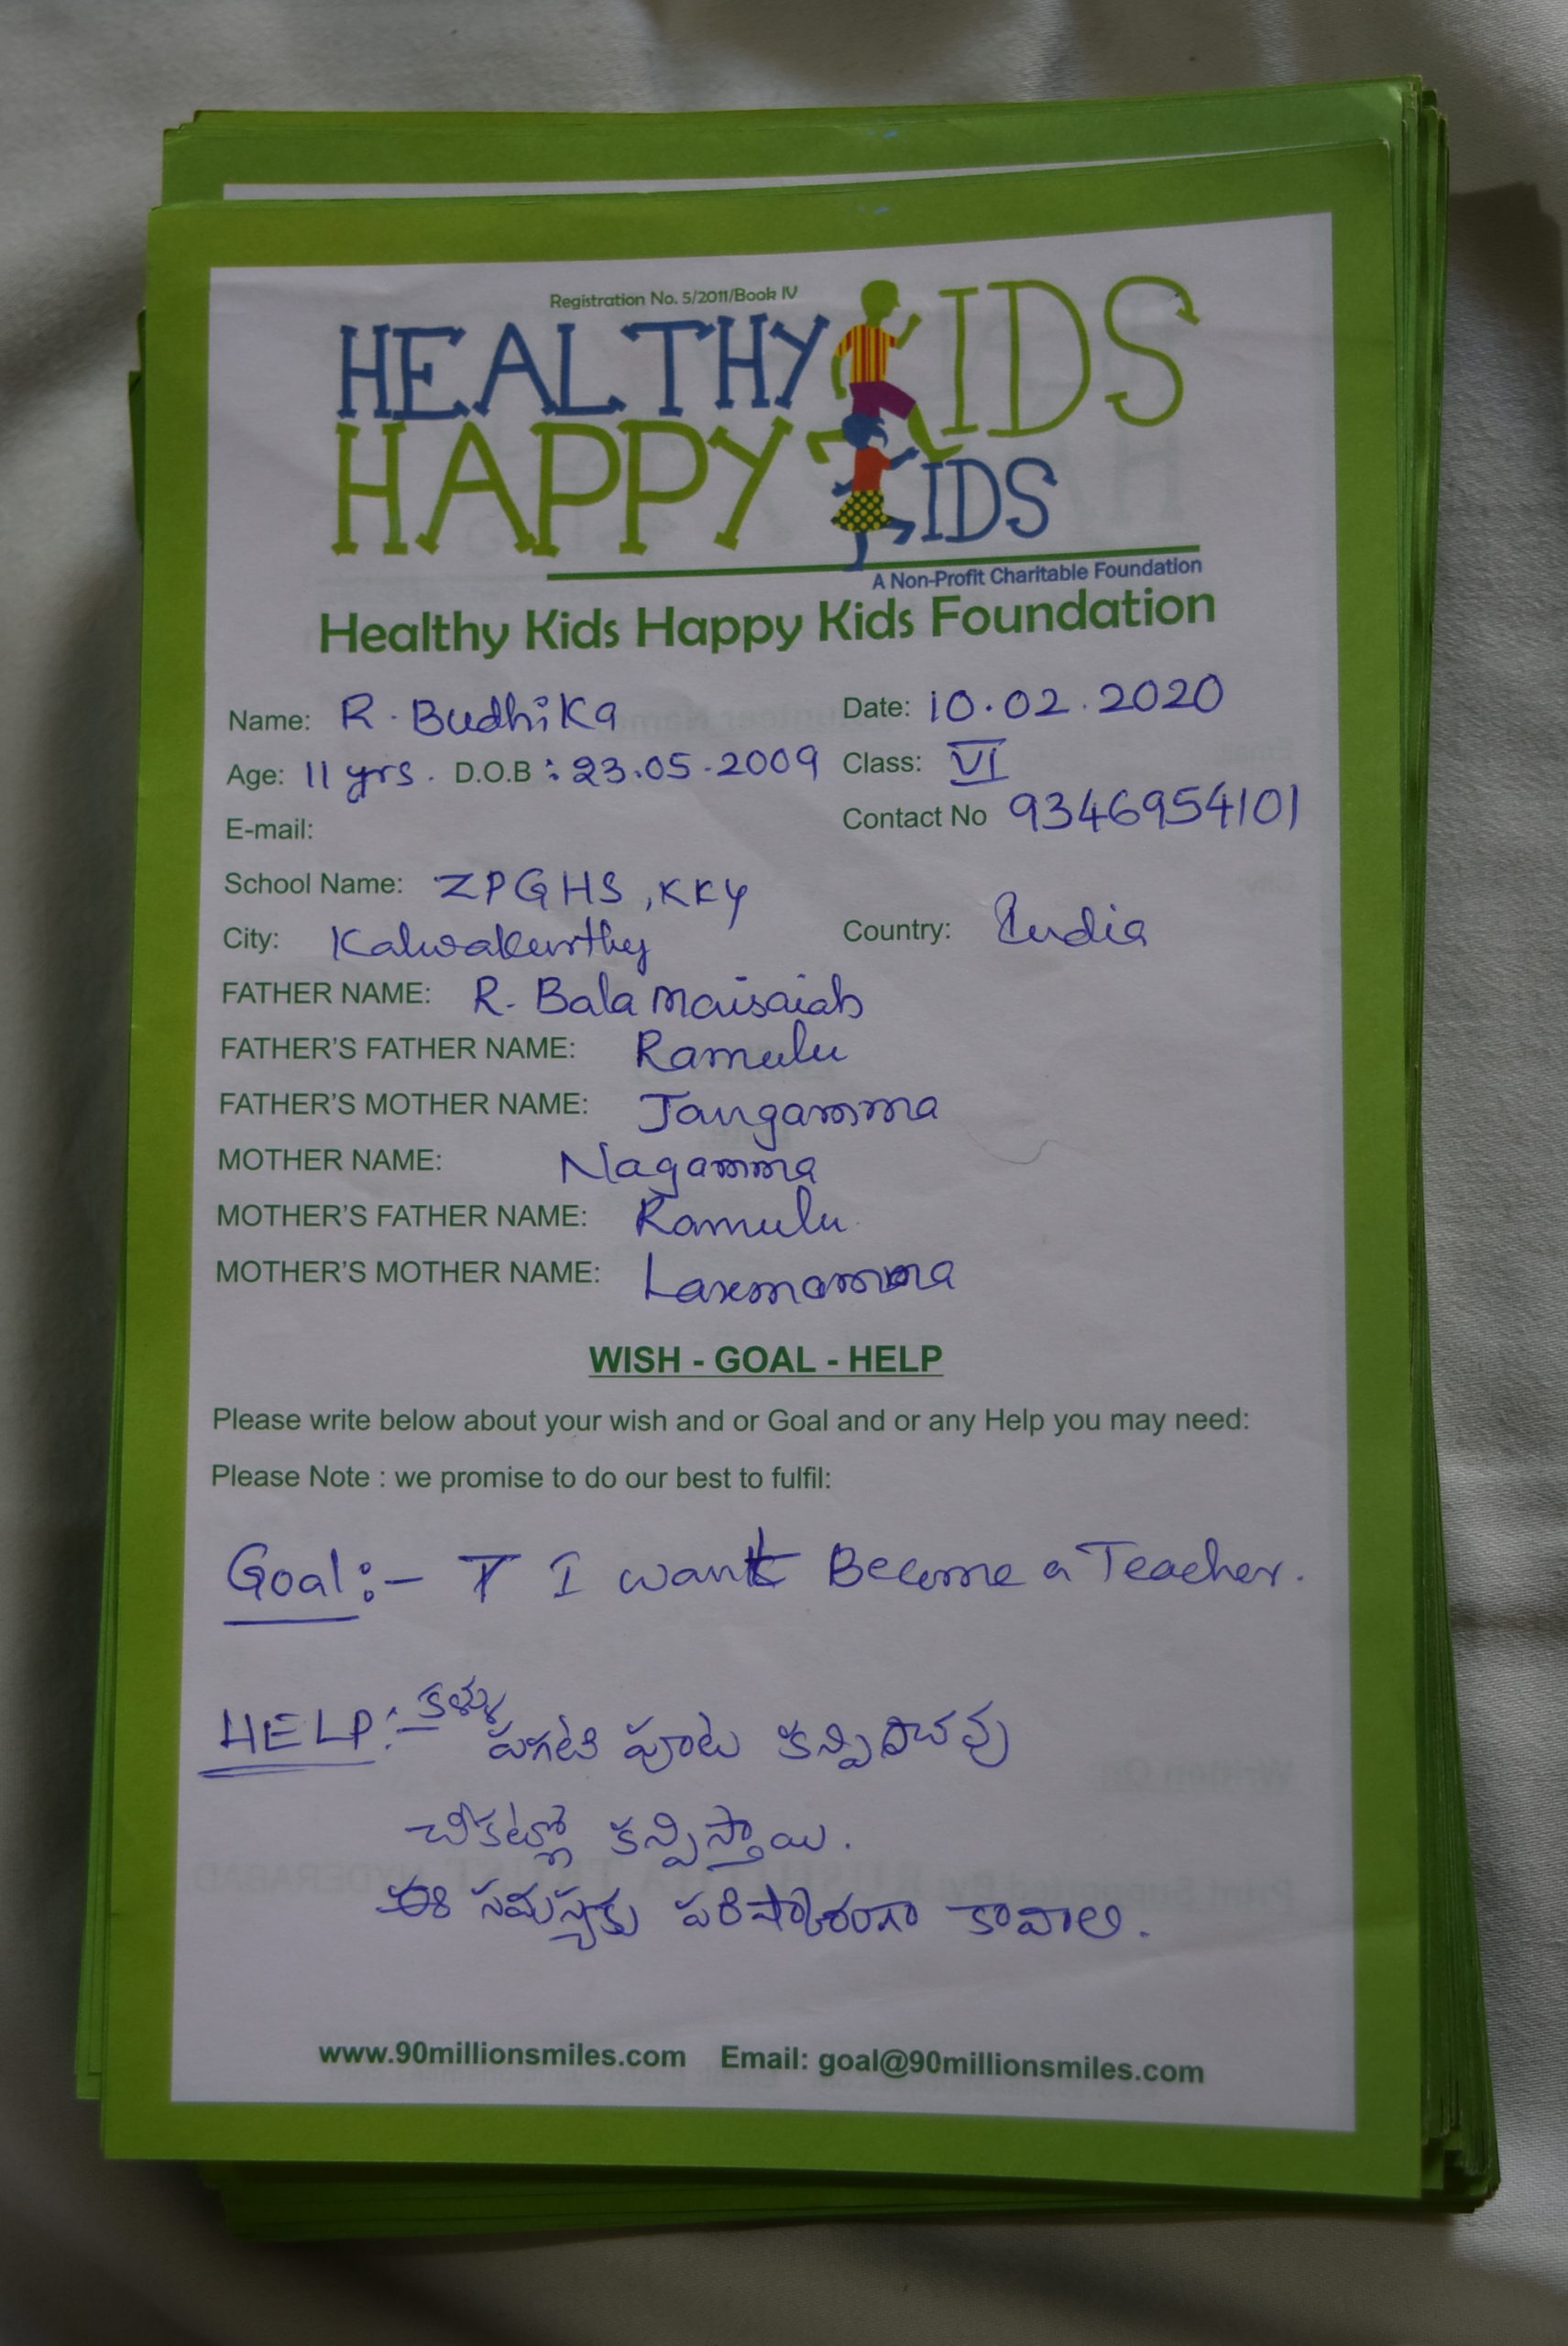 Registration No. 5/2011/Book IV
HEALTHY KIDS
HAPPY KIDS
A Non-Profit Charitable Foundation
Healthy Kids Happy Kids Foundation
Name: R. Budhika Date: 10.02.2020
Age: 11 yrs. D.O.B : 23.05.2009 Class: VI
E-mail: Contact No 9346954101
School Name: ZPGHS, KKY
City: Kalwakurthy Country: India
FATHER NAME: R. Bala Maisaiah
FATHER'S FATHER NAME: Ramulu
FATHER'S MOTHER NAME: Jangamma
MOTHER NAME: Nagamma
MOTHER'S FATHER NAME: Ramulu
MOTHER'S MOTHER NAME: Laxmamma
WISH - GOAL - HELP
Please write below about your wish and or Goal and or any Help you may need:
Please Note : we promise to do our best to fulfil:
Goal:- I want Become a Teacher.
HELP:- కళ్ళు పగటి పూట కన్పించవు
చీకట్లో కన్పిస్తాయి.
ఈ సమస్యకు పరిష్కారంగా కావాలి.
www.90millionsmiles.com Email: goal@90millionsmiles.com